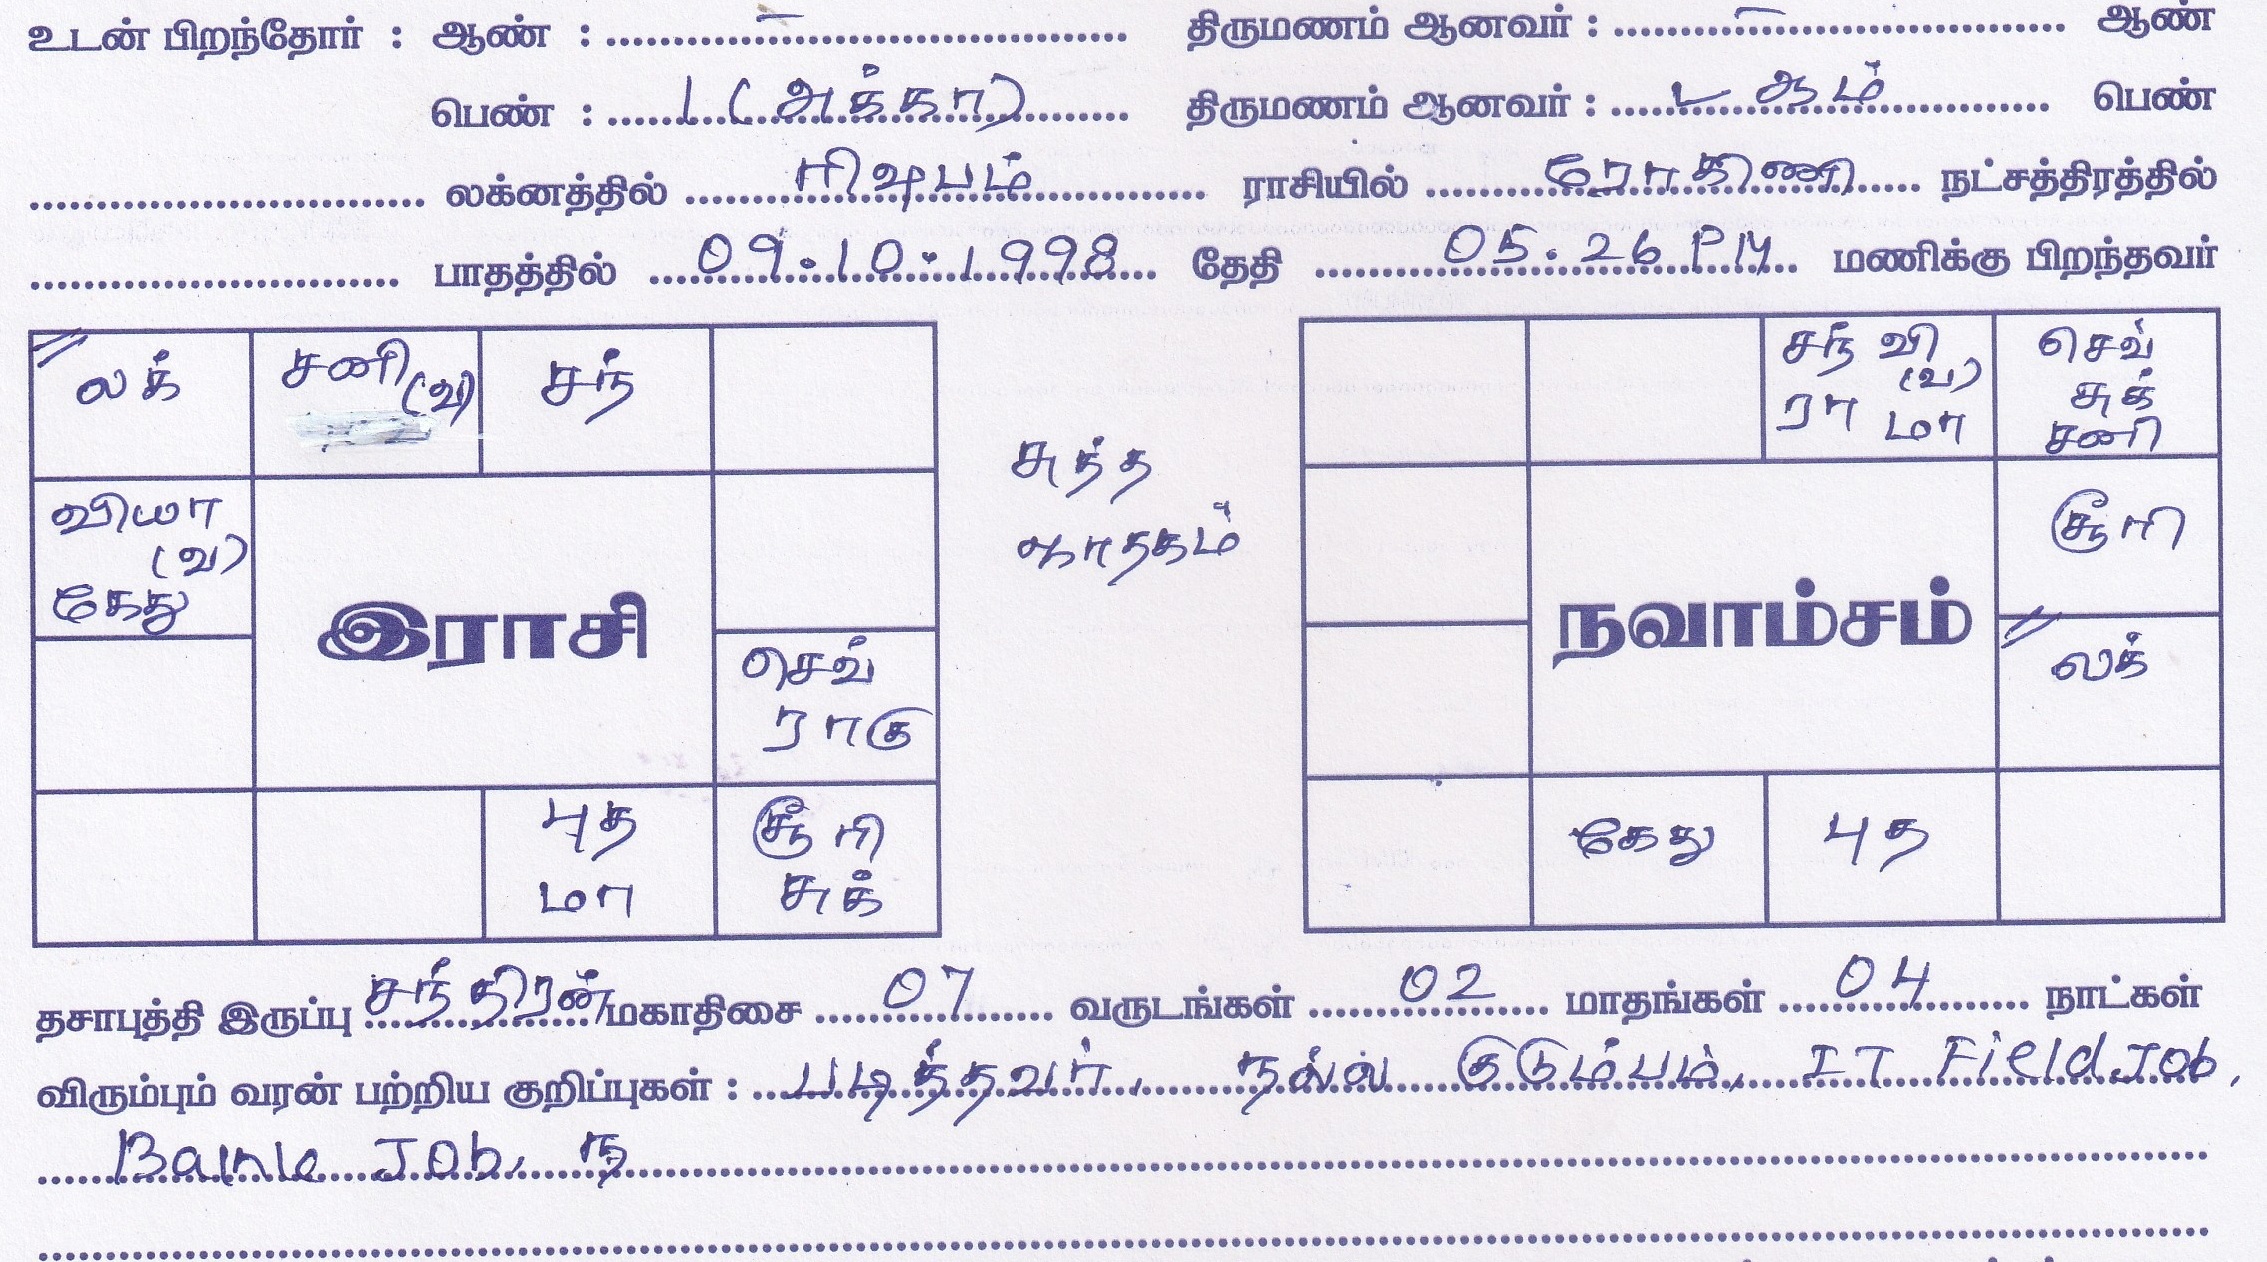 உடன் பிறந்தோர் : ஆண் : – திருமணம் ஆனவர் : – ஆண்
பெண் : 1 (அக்கா) திருமணம் ஆனவர் : ஆம் பெண்
லக்னத்தில் ரிஷபம் ராசியில் ரோகிணி நட்சத்திரத்தில்
பாதத்தில் 09.10.1998 தேதி 05.26 PM மணிக்கு பிறந்தவர்
லக்
சனி (வ)
சந்
வியா (வ)
கேது
இராசி
செவ்
ராகு
புத
மா
சூரி
சுக்
சுத்த
ஜாதகம்
சந் வி (வ)
ரா மா
செவ்
சுக்
சனி
சூரி
நவாம்சம்
லக்
கேது
புத
தசாபுத்தி இருப்பு சந்திரன் மகாதிசை 07 வருடங்கள் 02 மாதங்கள் 04 நாட்கள்
விரும்பும் வரன் பற்றிய குறிப்புகள் : படித்தவர், நல்ல குடும்பம், IT Field Job,
Bank Job, ந